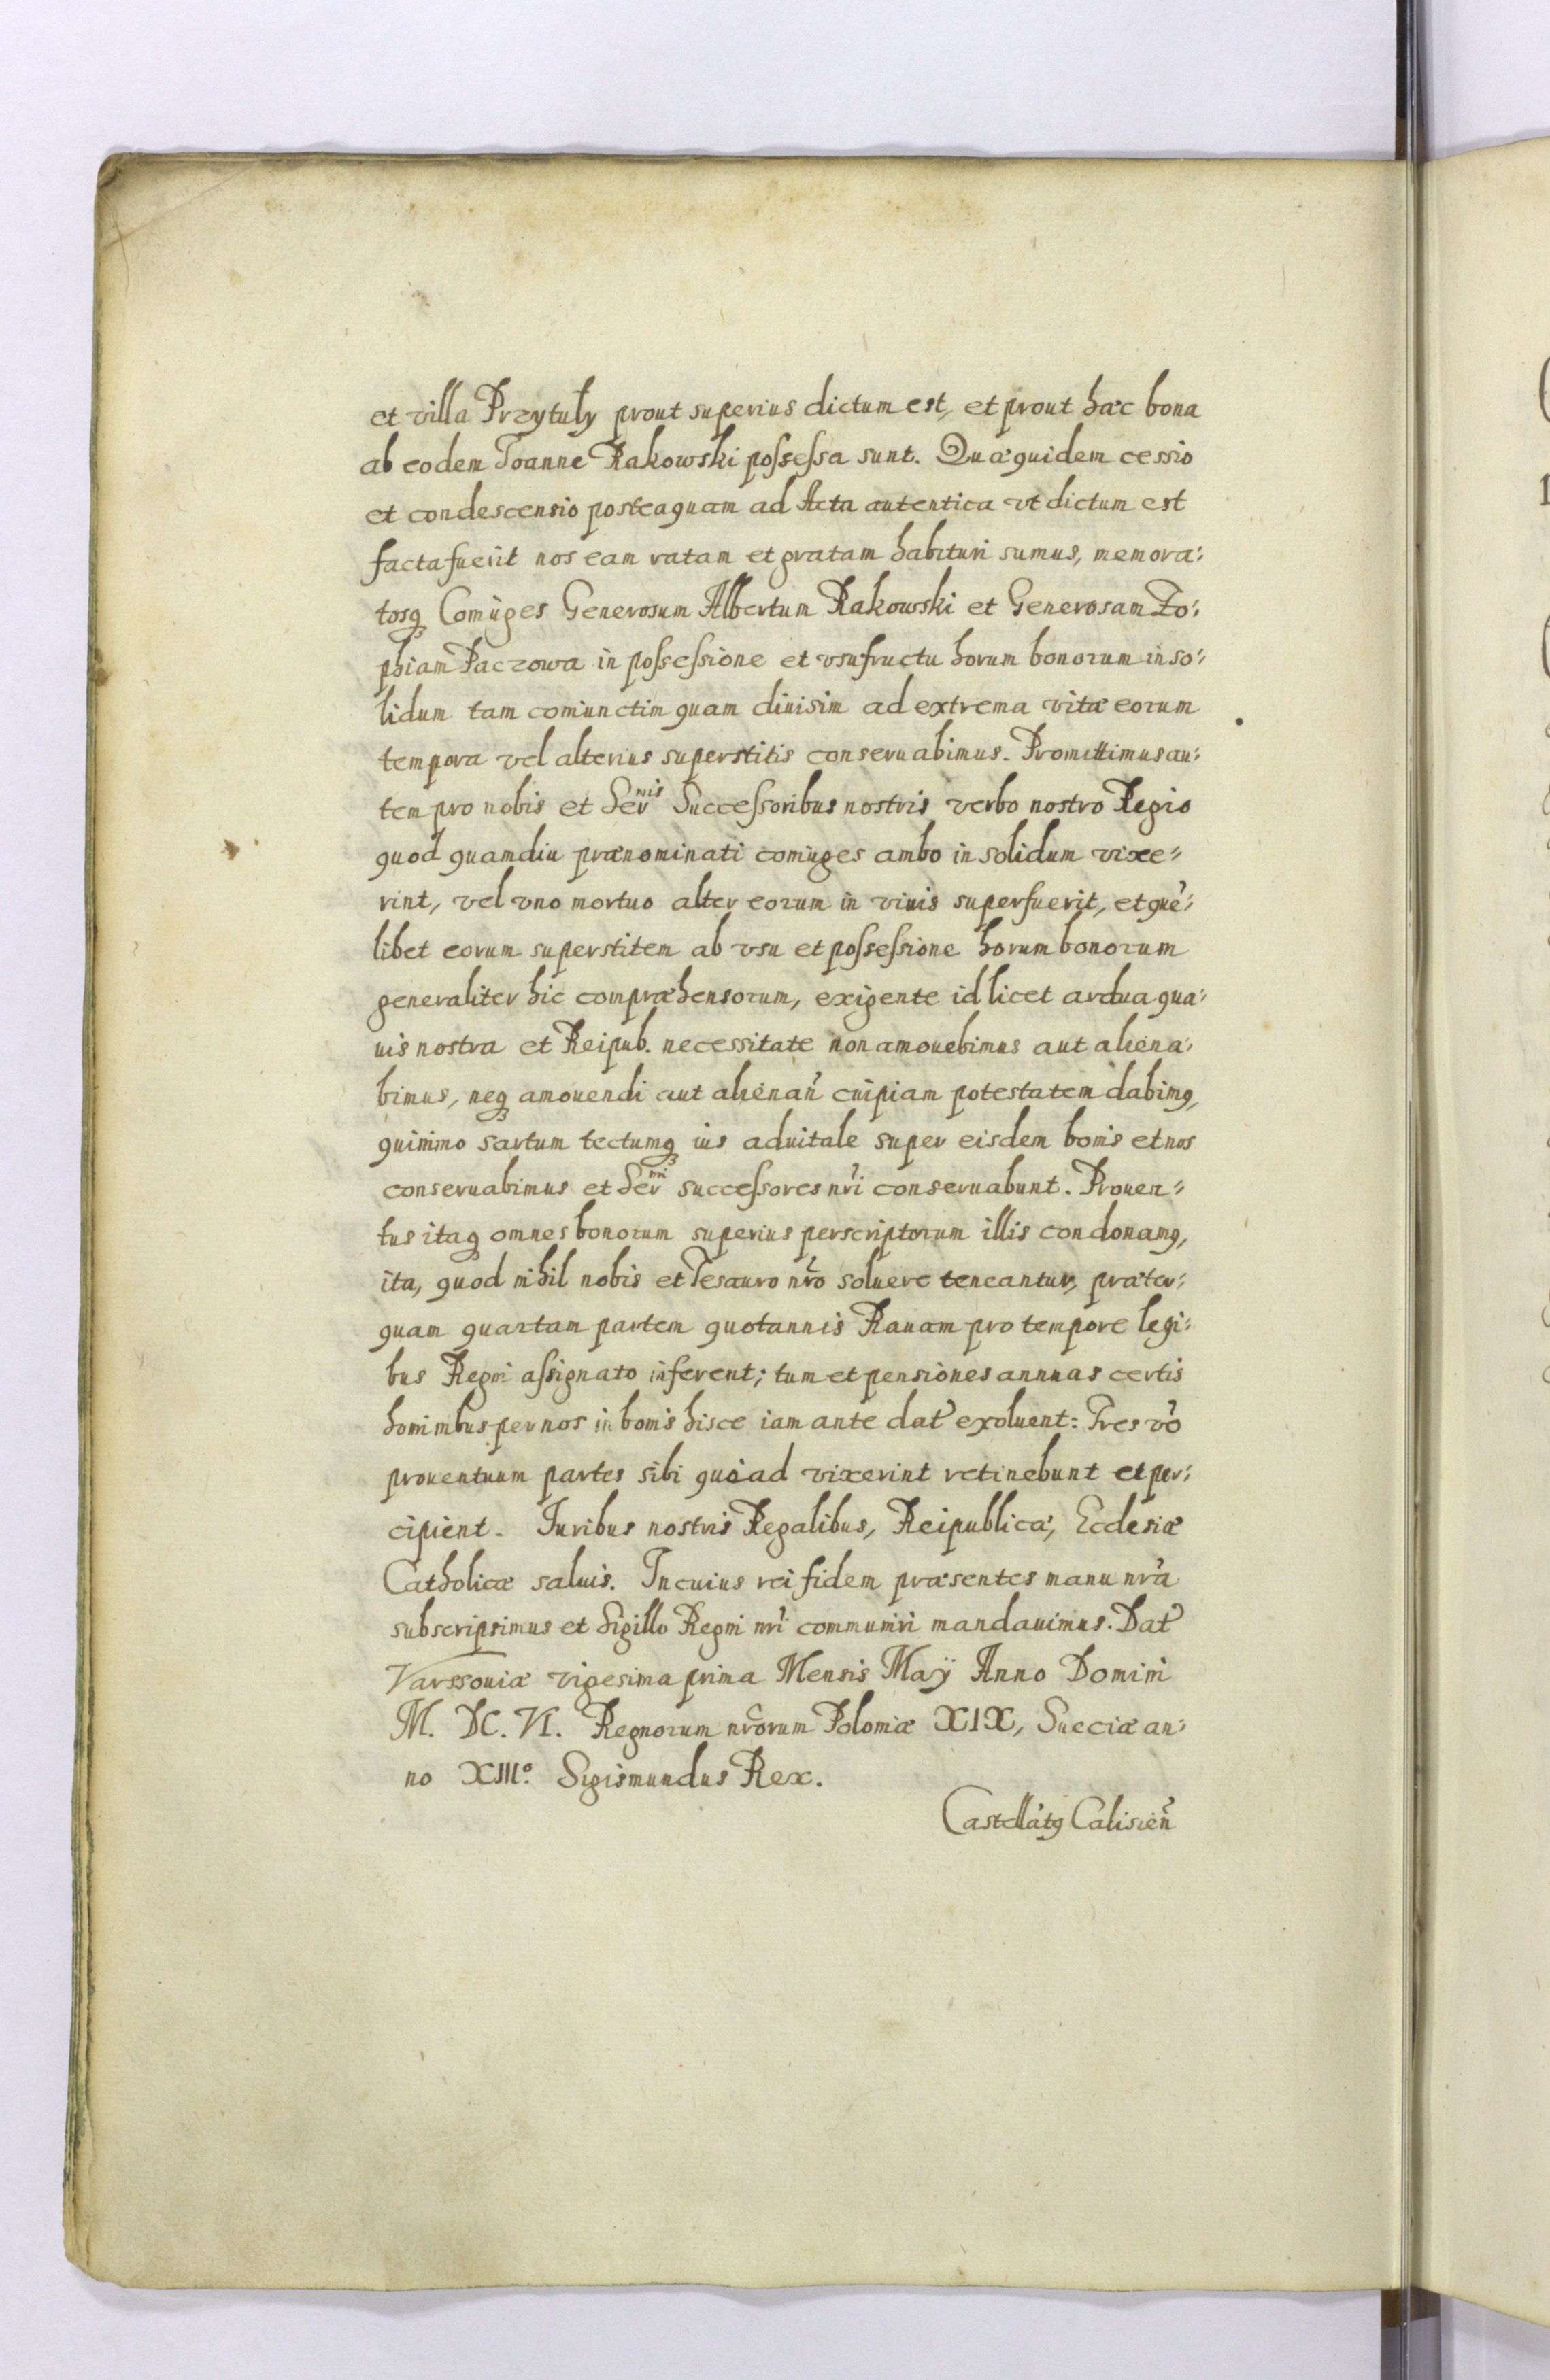 et villa Przytuły prout superius dictum est, et prout hæc bona
ab eodem Joanne Rakowski possessa sunt. Quæ quidem cessio
et condescensio posteaquam ad Acta autentica vt dictum est
facta fuerit nos eam ratam et gratam habituri sumus, memora:
tosq Coniuges Generosum Albertum Rakowski et Generosam Zo:
phiam Paczowa in possessione et vsufructu horum bonorum in so:
lidum tam coniunctim quam diuisim ad extrema vitæ eorum
tempora vel alterius superstitis conseruabimus. Promittimus au:
tem pro nobis et Ser^nis Successoribus nostris verbo nostro Regio
quod quamdiu prænominati coniuges ambo in solidum vixe:
rint, vel vno mortuo alter eorum in viuis superfuerit, et quē:
libet eorum superstitem ab vsu et possessione horum bonorum
generaliter hic compræhensorum, exigente id licet ardua qua:
uis nostra et Reipub. necessitate non amouebimus aut aliena:
bimus, neq amouendi aut alienañ cuipiam potestatem dabimq,
quinimo sartum tectumq ius aduitale super eisdem bonis et nos
conseruabimus et Ser^mi successores nri conseruabunt. Prouen:
tus itaq omnes bonorum superius perscriptorum illis condonamq,
ita, quod nihil nobis et Tesauro nro soluere teneantur, præter:
quam quartam partem quotannis Rauam pro tempore legi:
bus Regni assignato inferent; tum et pensiones annuas certis
hominibus per nos in bonis hisce iam ante dat exoluent: Tres vo
prouentuum partes sibi quoad vixerint retinebunt et per:
cipient. Juribus nostris Regalibus, Reipublicæ, Ecclesiæ
Catholicæ saluis. In cuius rei fidem præsentes manu nra
subscripsimus et Sigillo Regni nri communiri mandauimus. Dat
Varssouiæ vigesima prima Mensis Maÿ Anno Domini
M. DC. VI. Regnorum nrorum Poloniæ XIX, Sueciæ an:
no XIII°. Sigismundus Rex.
Castellatq Calisień